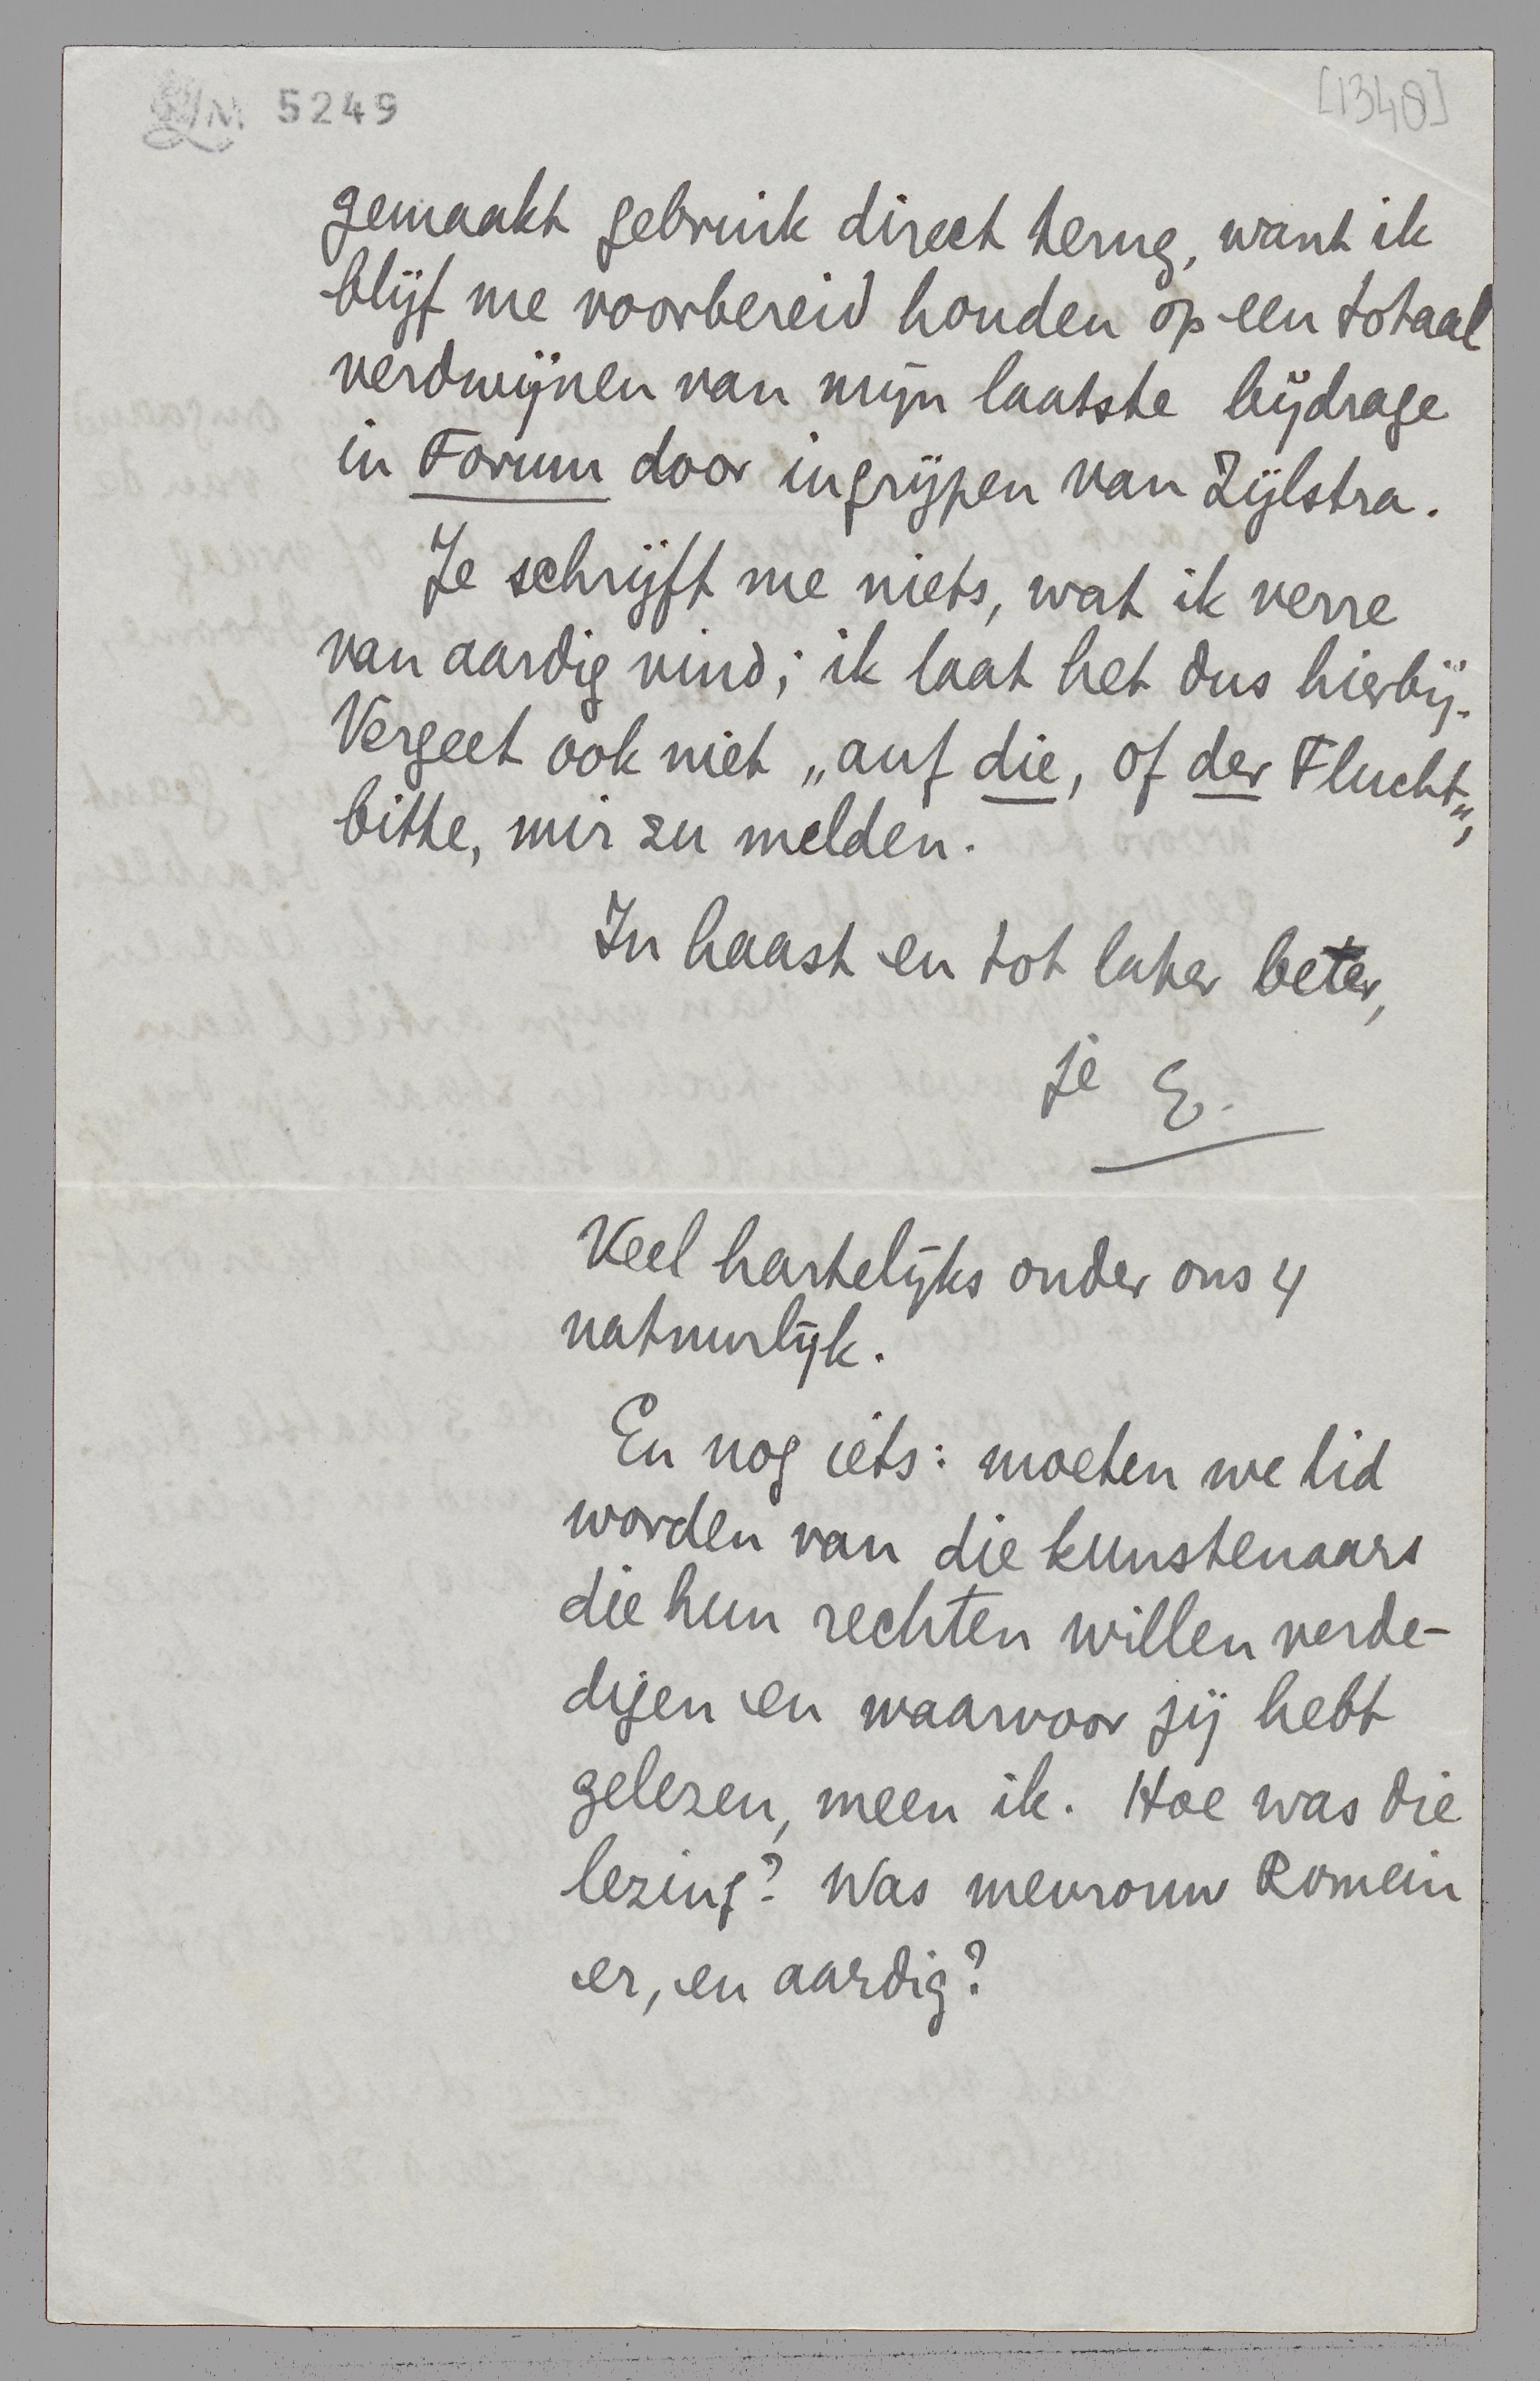 5249
[1348]
gemaakt gebruik direct terug, want ik
blijf me voorbereid houden op een totaal
verdwijnen van mijn laatste bijdrage
in Forum door ingrijpen van Zijlstra.
Je schrijft me niets, wat ik verre
van aardig vind; ik laat het dus hierbij.
Vergeet ook niet „auf die, of der Flucht”,
bitte, mir zu melden.
In haast en tot later beter,
je E.
Veel hartelijks onder ons 4
natuurlijk.
En nog iets: moeten we lid
worden van die kunstenaars
die hun rechten willen verde-
digen en waarvoor jij hebt
gelezen, meen ik. Hoe was die
lezing? Was mevrouw Romein
er, en aardig?